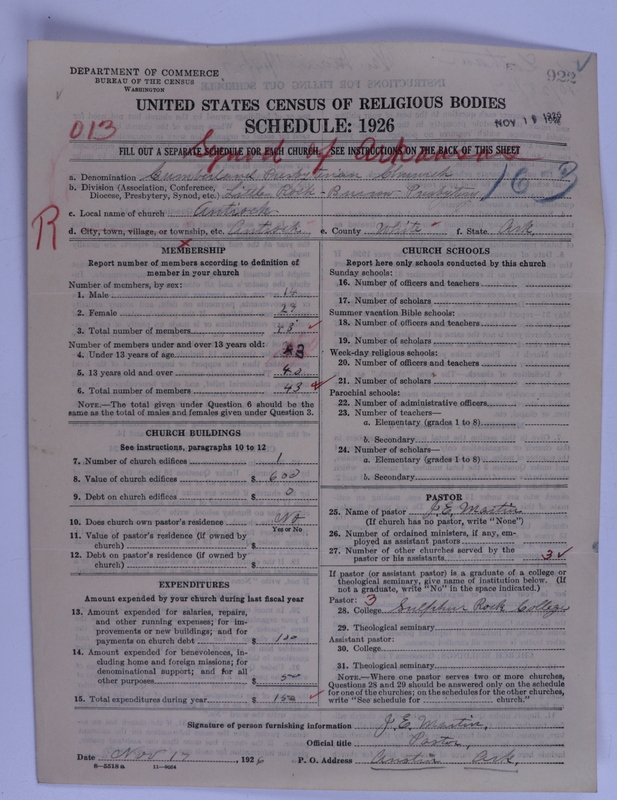 DEPARTMENT OF COMMERCE
BUREAU OF THE CENSUS
WASHINGTON
922
UNITED STATES CENSUS OF RELIGIOUS BODIES
SCHEDULE: 1926
NOV 1 1926
013
Synod of Arkansas
FILL OUT A SEPARATE SCHEDULE FOR EACH CHURCH. SEE INSTRUCTIONS ON THE BACK OF THIS SHEET
163
R
a. Denomination Cumberland Presbyterian Church
b. Division (Association, Conference, Diocese, Presbytery, Synod, etc.) Little Rock - Presbytery
c. Local name of church Antioch
d. City, town, village, or township, etc. Antioch e. County White f. State Ark
MEMBERSHIP
Report number of members according to definition of member in your church
Number of members, by sex:
1. Male 14
2. Female 29
3. Total number of members 43
Number of members under and over 13 years old:
4. Under 13 years of age 3
5. 13 years old and over 40
6. Total number of members 43
NOTE.—The total given under Question 6 should be the
same as the total of males and females given under Question 3.
CHURCH BUILDINGS
See instructions, paragraphs 10 to 12
7. Number of church edifices 1
8. Value of church edifices $ 600
9. Debt on church edifices $ 0
10. Does church own pastor's residence No
Yes or No
11. Value of pastor's residence (if owned by
church) $
12. Debt on pastor's residence (if owned by
church) $
EXPENDITURES
Amount expended by your church during last fiscal year
13. Amount expended for salaries, repairs,
and other running expenses; for im-
provements or new buildings; and for
payments on church debt $ 100
14. Amount expended for benevolences, in-
cluding home and foreign missions; for
denominational support; and for all
other purposes $ 50
15. Total expenditures during year $ 150
CHURCH SCHOOLS
Report here only schools conducted by this church
Sunday schools:
16. Number of officers and teachers
17. Number of scholars
Summer vacation Bible schools:
18. Number of officers and teachers
19. Number of scholars
Week-day religious schools:
20. Number of officers and teachers
21. Number of scholars
Parochial schools:
22. Number of administrative officers
23. Number of teachers—
a. Elementary (grades 1 to 8)
b. Secondary
24. Number of scholars—
a. Elementary (grades 1 to 8)
b. Secondary
PASTOR
25. Name of pastor J. E. Martin
(If church has no pastor, write "None")
26. Number of ordained ministers, if any, em-
ployed as assistant pastors
27. Number of other churches served by the
pastor or his assistants 3
If pastor (or assistant pastor) is a graduate of a college or
theological seminary, give name of institution below. (If
not a graduate, write "No" in the space indicated.)
Pastor: 3
28. College Sulphur Rock College
29. Theological seminary
Assistant pastor:
30. College
31. Theological seminary
NOTE.—Where one pastor serves two or more churches,
Questions 28 and 29 should be answered only on the schedule
for one of the churches; on the schedules for the other churches,
write "See schedule for church."
Signature of person furnishing information J. E. Martin,
Official title Pastor,
Date Nov 17, 1926 P. O. Address Austin Ark
8-5518 a 11-9054